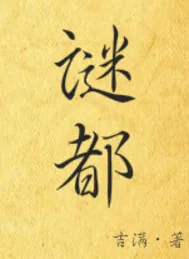 谜
都
吉满·著